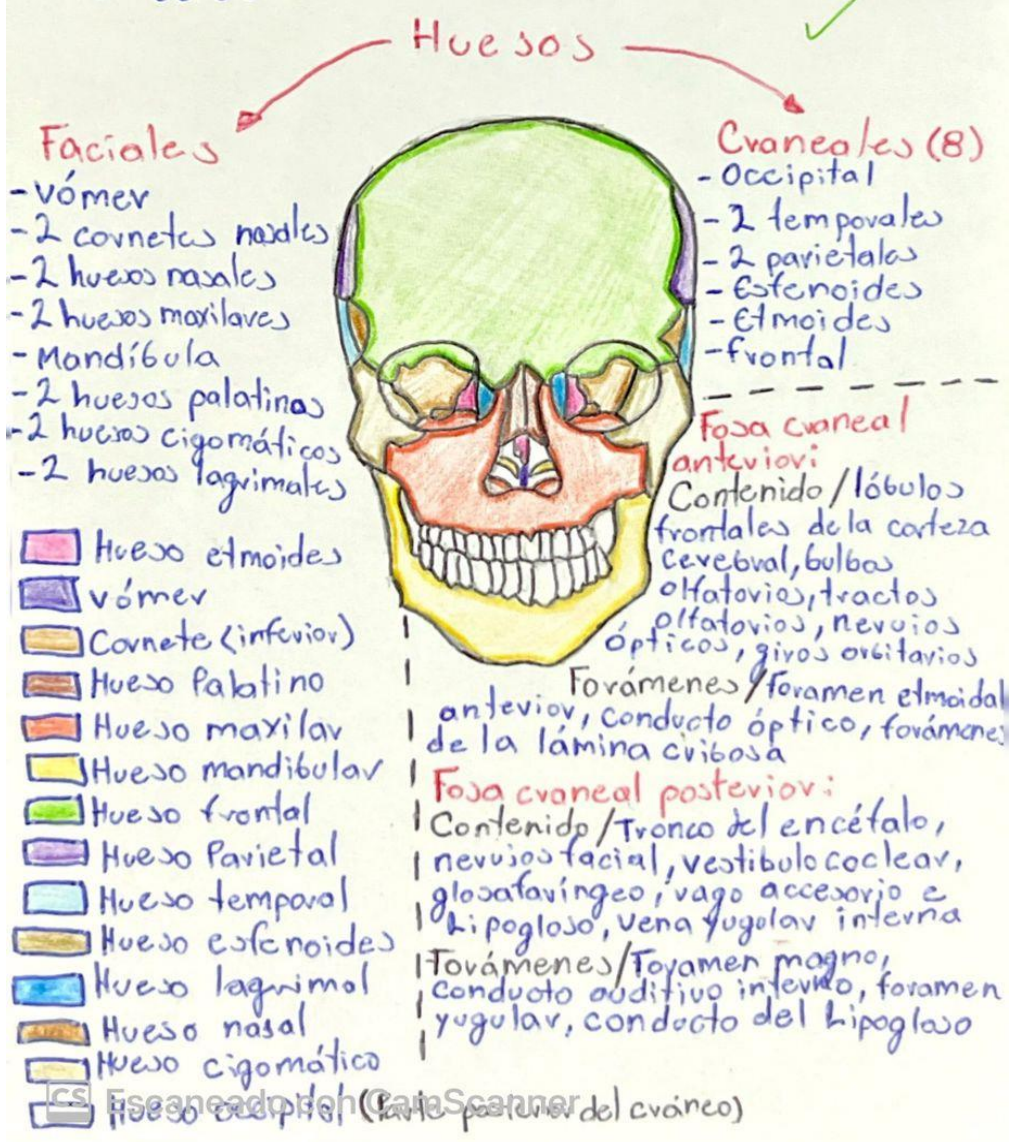 Huesos
Faciales
-vómer
-2 cornetes nasales
-2 huesos nasales
-2 huesos maxilares
- Mandíbula
-2 huesos palatinos
-2 huesos cigomáticos
-2 huesos lagrimales
Craneales (8)
- Occipital
- 2 temporales
- 2 parietales
- Esfenoides
- Etmoides
- frontal
Hueso etmoides
vómer
Cornete (inferior)
Hueso Palatino
Hueso maxilar
Hueso mandibular
Hueso frontal
Hueso Parietal
Hueso temporal
Hueso esfenoides
Hueso lagrimal
Hueso nasal
Hueso cigomático
Hueso occipital (Parte posterior del cráneo)
Fosa craneal
anterior:
Contenido/lóbulos
frontales de la corteza
cerebral, bulbos
olfatorios, tractos
olfatorios, nervios
ópticos, giros orbitarios
Forámenes/foramen etmoidal
anterior, conducto óptico, forámenes
de la lámina cribosa
Fosa craneal posterior:
Contenido/Tronco del encéfalo,
nervios facial, vestibulo coclear,
glosofaríngeo, vago accesorio e
hipogloso, vena yugular interna
Forámenes/Foramen magno,
conducto auditivo interno, foramen
yugular, conducto del hipogloso
CS Escaneado con CamScanner